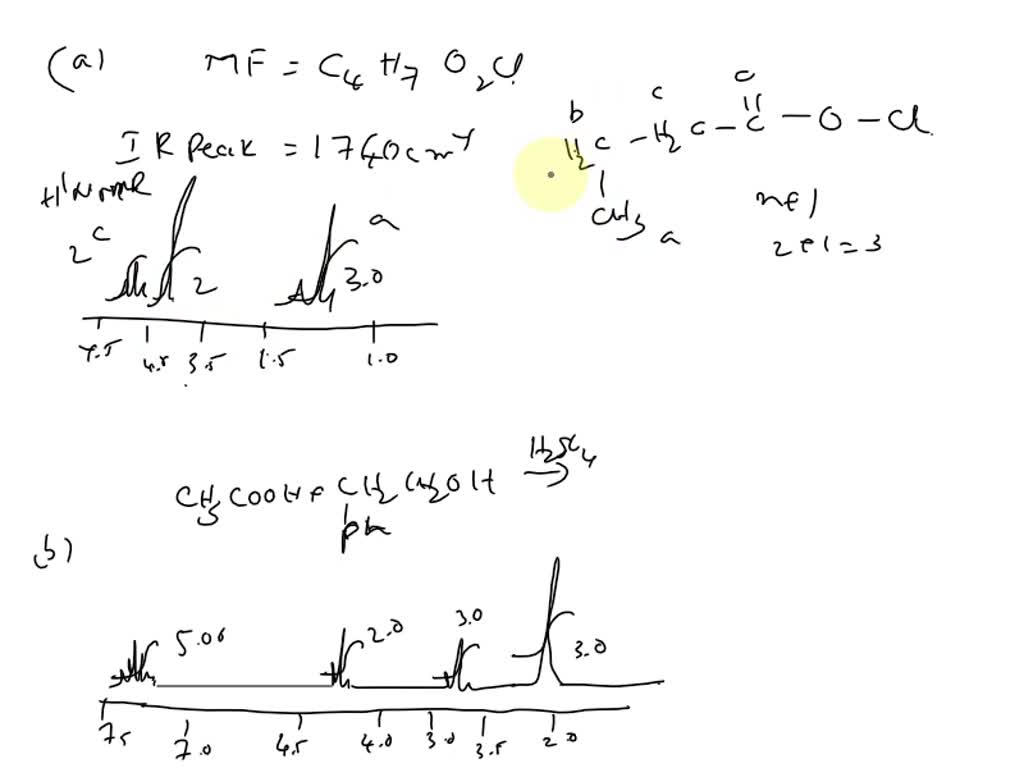 (a) MF = C4 H7 O2Cl
IR Peak = 1740cm-1
H'NMR
2 c
2
a
3.0
4.5 3.5 1.5 1.0
b c O
H2C - H2C - C - O - Cl
CH3 a
n+1
2+1=3
CH3COOH + CH2 CH2OH H2SO4
ph
b)
5.06 2.0 3.0 3.0
7.5 7.0 4.5 4.0 3.0 3.5 2.0